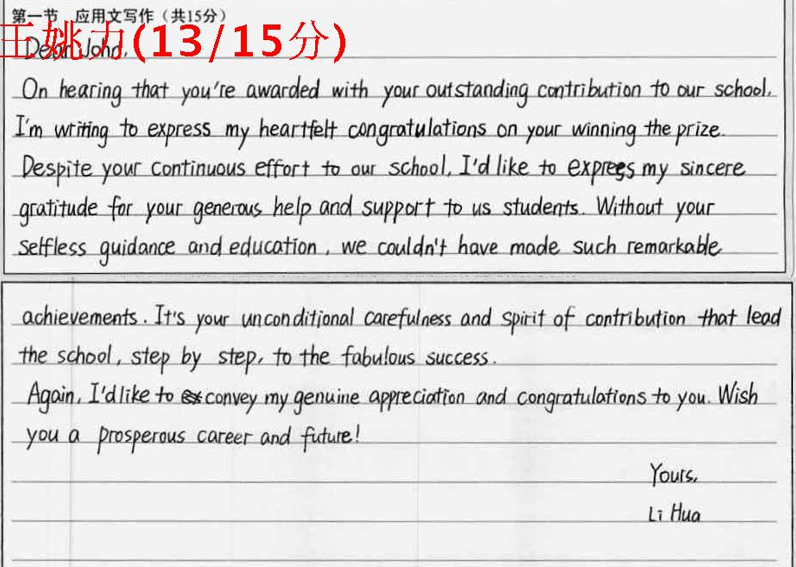 第一节 应用文写作（共15分）
王姚力(13/15分)
Dear John,
On hearing that you're awarded with your outstanding contribution to our school,
I'm writing to express my heartfelt congratulations on your winning the prize.
Despite your continuous effort to our school, I'd like to express my sincere
gratitude for your generous help and support to us students. Without your
selfless guidance and education, we couldn't have made such remarkable
achievements. It's your unconditional carefulness and spirit of contribution that lead
the school, step by step, to the fabulous success.
Again, I'd like to convey my genuine appreciation and congratulations to you. Wish
you a prosperous career and future!
Yours,
Li Hua